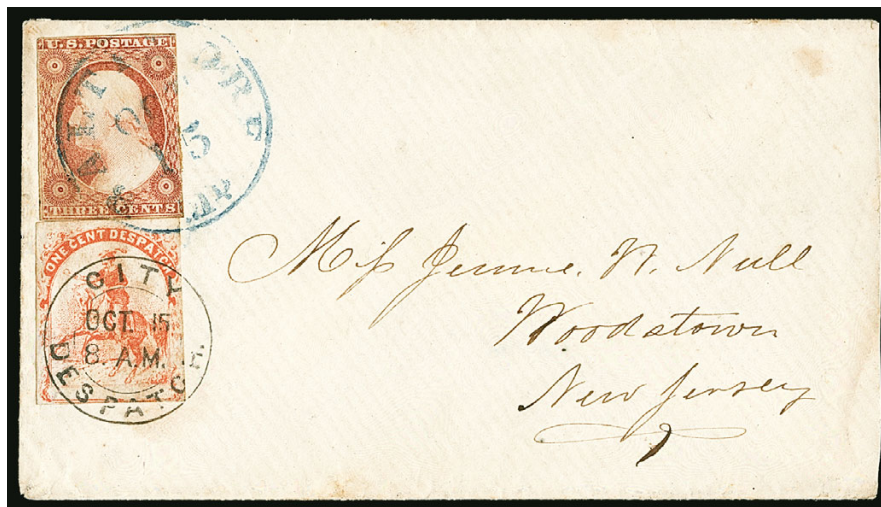 U.S. POSTAGE
THREE CENTS
BALTIMORE
OCT
15
Md
ONE CENT DESPATCH
CITY
OCT. 15
8. A.M.
DESPATCH.
Miss Jennie. N. Null
Woodstown
New Jersey